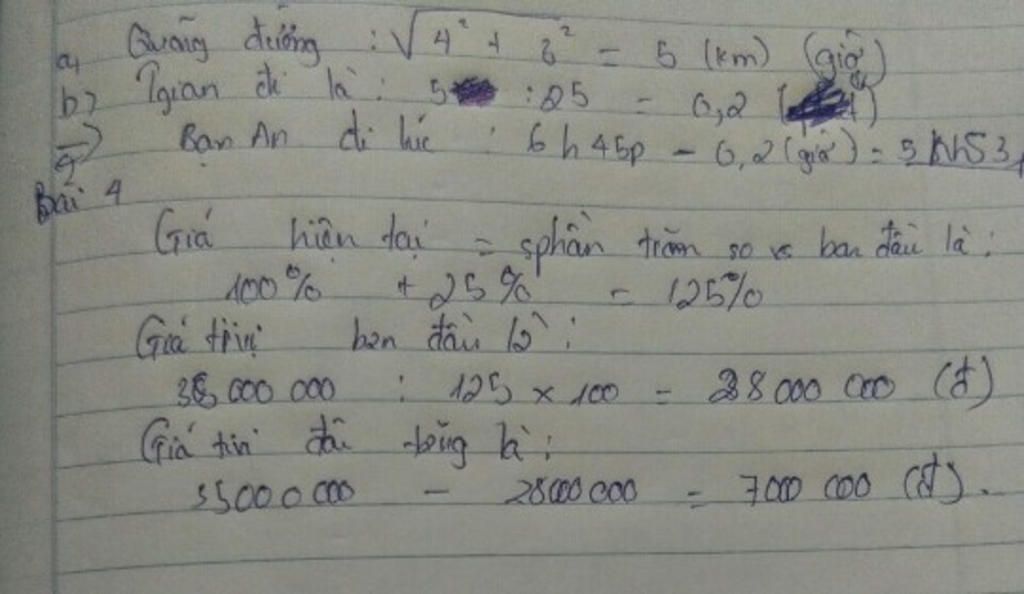 a, Quãng đường : √4² + 3² = 5 (km) (giờ)
b) Tgian đi là : 5 : 25 = 0,2
=> Bạn An đi lúc : 6h45p - 0,2 (giờ) =
Bài 4
Giá hiện tại = sphần trăm so vs ban đầu là :
100% + 25% = 125%
Giá ban đầu là :
35 000 000 : 125 x 100 = 28 000 000 (đ)
Giá là :
35000000 - 28000000 = 7000 000 (đ).